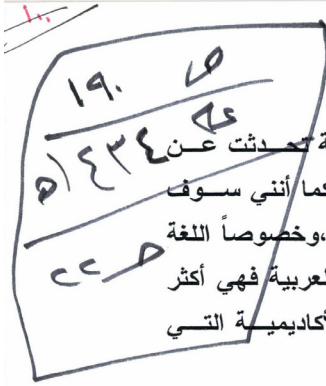 ١٠٠
ص ١٩٠
ع ١٤٣٤ه
ة تحدثت عن
كما أنني سوف
ح ٢٢
،وخصوصاً اللغة
لعربية فهي أكثر
أكاديمية التي